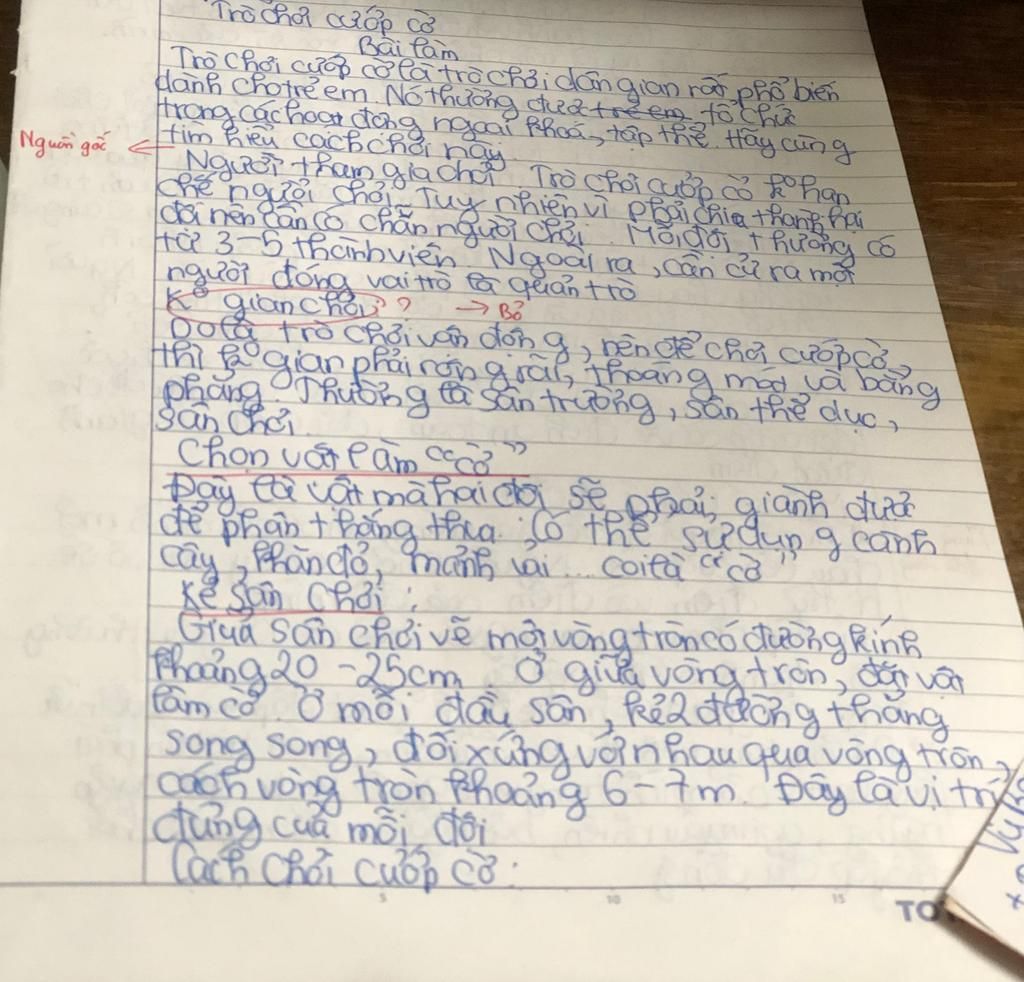 Trò chơi cướp cờ
Bài làm
Trò chơi cướp cờ là trò chơi dân gian rất phổ biến
dành cho trẻ em. Nó thường được trẻ em tổ chức
trong các hoạt động ngoại khoá, tập thể. Hãy cùng
Nguồn gốc ← tìm hiểu cách chơi này
Người tham gia chơi Trò chơi cướp cờ ko hạn
chế người chơi. Tuy nhiên vì phải chia thành hai
đội nên cần có chẵn người chơi. Mỗi đội thường có
từ 3-5 thành viên. Ngoài ra, cần cử ra một
người đóng vai trò là quản trò
Ko gian chơi ? ? → Bỏ
Do là trò chơi vận động, nên để chơi cướp cờ
thì ko gian phải rộng rãi, thoáng mát và bằng
phẳng. Thường là sân trường, sân thể dục,
sân chơi.
Chọn vật làm "cờ"
Đây là vật mà hai đội sẽ phải giành được
để phân thắng thua. Có thể sử dụng cành
cây, khăn đỏ, mảnh vải... coi là "cờ"
Kẻ sân chơi:
Giữa sân chơi vẽ một vòng tròn có đường kính
khoảng 20 - 25cm. Ở giữa vòng tròn, đặt vật
làm cờ. Ở mỗi đầu sân, kẻ 2 đường thẳng
song song, đối xứng với nhau qua vòng tròn,
cách vòng tròn khoảng 6-7m. Đây là vị trí
đứng của mỗi đội
Cách chơi cướp cờ:
5 10 15
TO